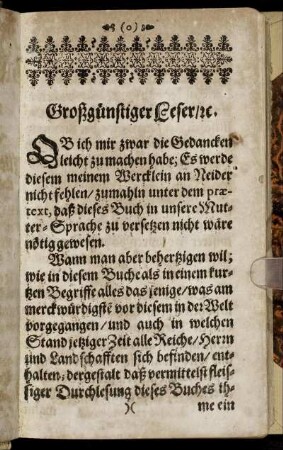 (0)
Großgünstiger Leser/ꝛc.
OB ich mir zwar die Gedancken
leicht zu machen habe; Es werde
diesem meinem Wercklein an Neider
nicht fehlen/ zumahln unter dem præ-
text, daß dieses Buch in unsere Mut-
ter-Sprache zu versetzen nicht wäre
nötig gewesen.
Wann man aber behertzigen wil;
wie in diesem Buche als in einem kur-
tzen Begriffe alles das jenige/ was am
merckwürdigstẽ vor diesem in der Welt
vorgegangen/ und auch in welchen
Stand jetziger Zeit alle Reiche/ Herrn
und Landschafften sich befinden/ ent-
halten; dergestalt daß vermittelst fleis-
siger Durchlesung dieses Buches ih-
)( me ein